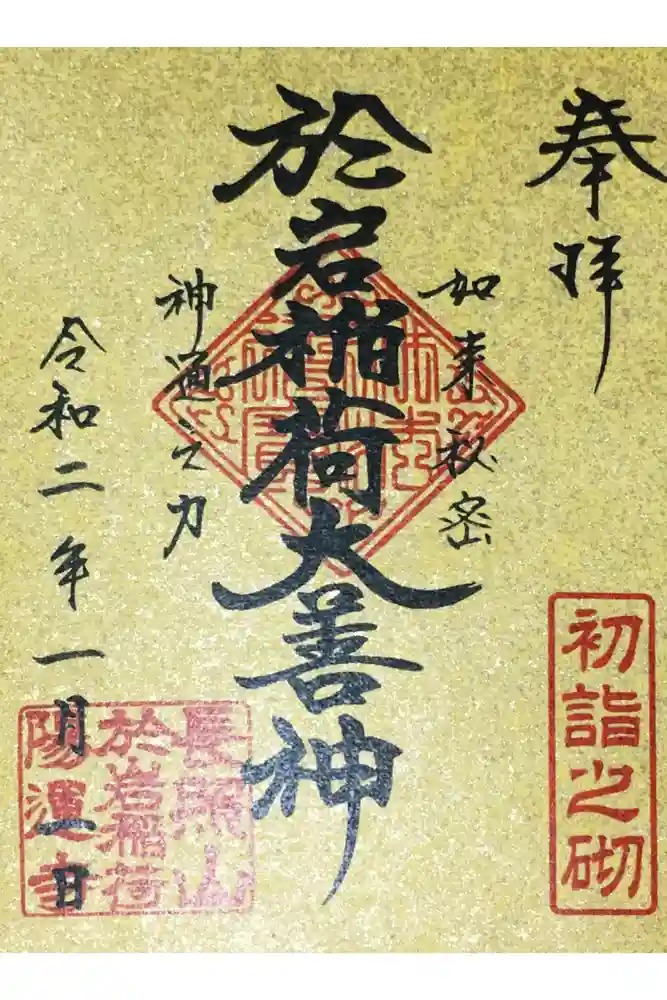 奉拝
初詣之砌
如来秘密
於岩稲荷大善神
神通之力
令和二年一月一日
長照山
於岩稲荷
陽運寺